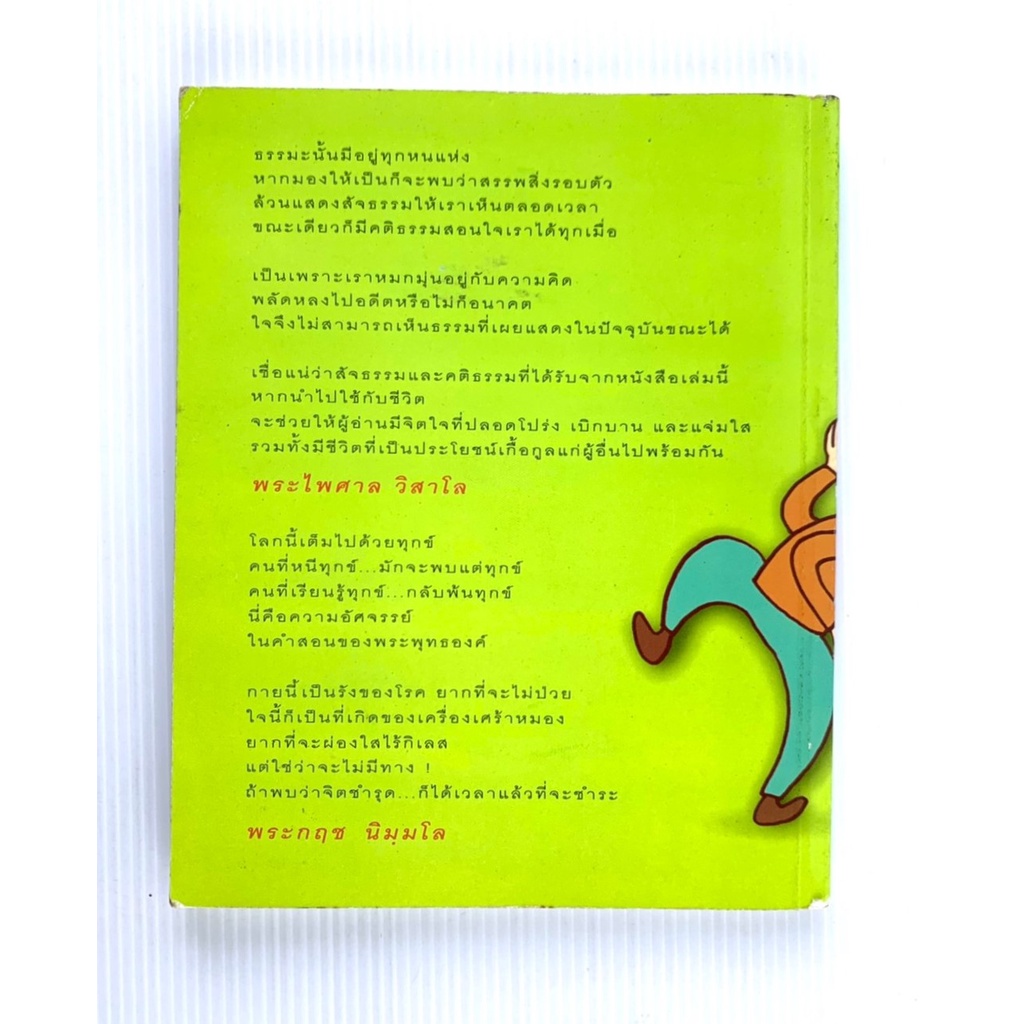 ธรรมะนั้นมีอยู่ทุกหนแห่ง
หากมองให้เป็นก็จะพบว่าสรรพสิ่งรอบตัว
ล้วนแสดงสัจธรรมให้เราเห็นตลอดเวลา
ขณะเดียวก็มีคติธรรมสอนใจเราได้ทุกเมื่อ
เป็นเพราะเราหมกมุ่นอยู่กับความคิด
พลัดหลงไปอดีตหรือไม่ก็อนาคต
ใจจึงไม่สามารถเห็นธรรมที่เผยแสดงในปัจจุบันขณะได้
เชื่อแน่ว่าสัจธรรมและคติธรรมที่ได้รับจากหนังสือเล่มนี้
หากนำไปใช้กับชีวิต
จะช่วยให้ผู้อ่านมีจิตใจที่ปลอดโปร่ง เบิกบาน และแจ่มใส
รวมทั้งมีชีวิตที่เป็นประโยชน์เกื้อกูลแก่ผู้อื่นไปพร้อมกัน
พระไพศาล วิสาโล
โลกนี้เต็มไปด้วยทุกข์
คนที่หนีทุกข์...มักจะพบแต่ทุกข์
คนที่เรียนรู้ทุกข์...กลับพ้นทุกข์
นี่คือความอัศจรรย์
ในคำสอนของพระพุทธองค์
กายนี้เป็นรังของโรค ยากที่จะไม่ป่วย
ใจนี้ก็เป็นที่เกิดของเครื่องเศร้าหมอง
ยากที่จะผ่องใสไร้กิเลส
แต่ใช่ว่าจะไม่มีทาง !
ถ้าพบว่าจิตชำรุด...ก็ได้เวลาแล้วที่จะชำระ
พระกฤช นิมฺมโล